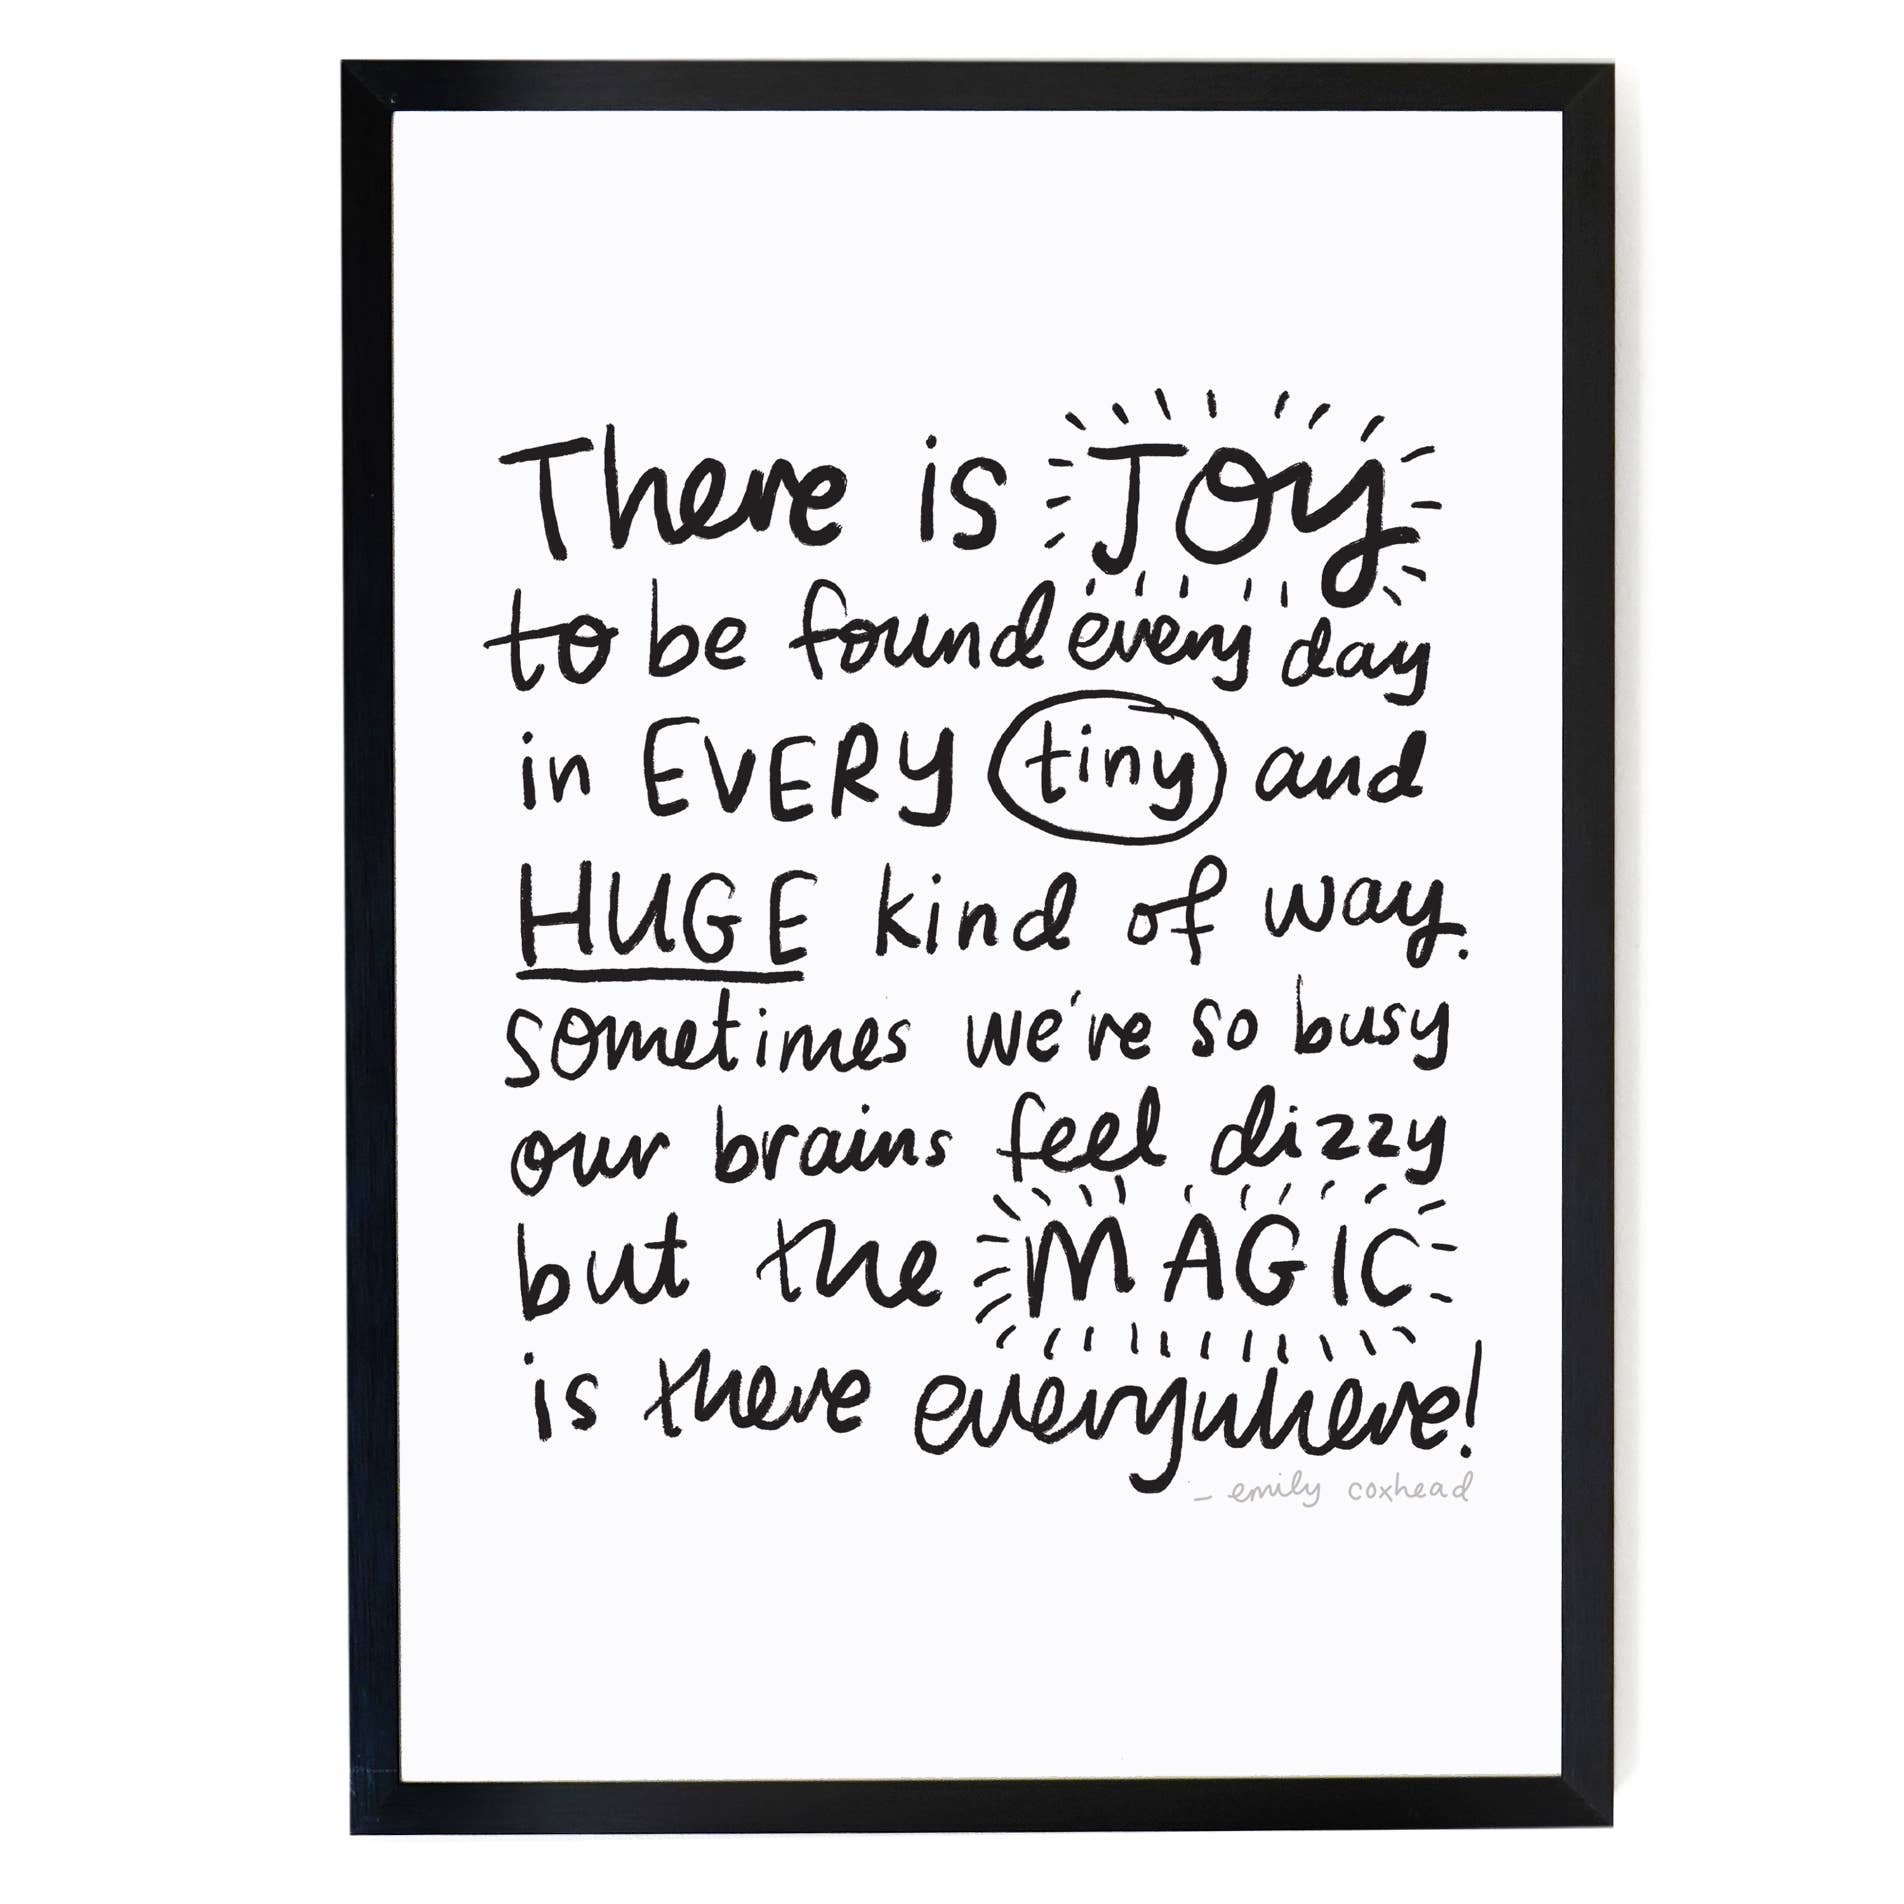 There is JOY
to be found every day
in EVERY tiny and
HUGE kind of way.
sometimes we're so busy
our brains feel dizzy
but the MAGIC
is there everywhere!
- emily coxhead